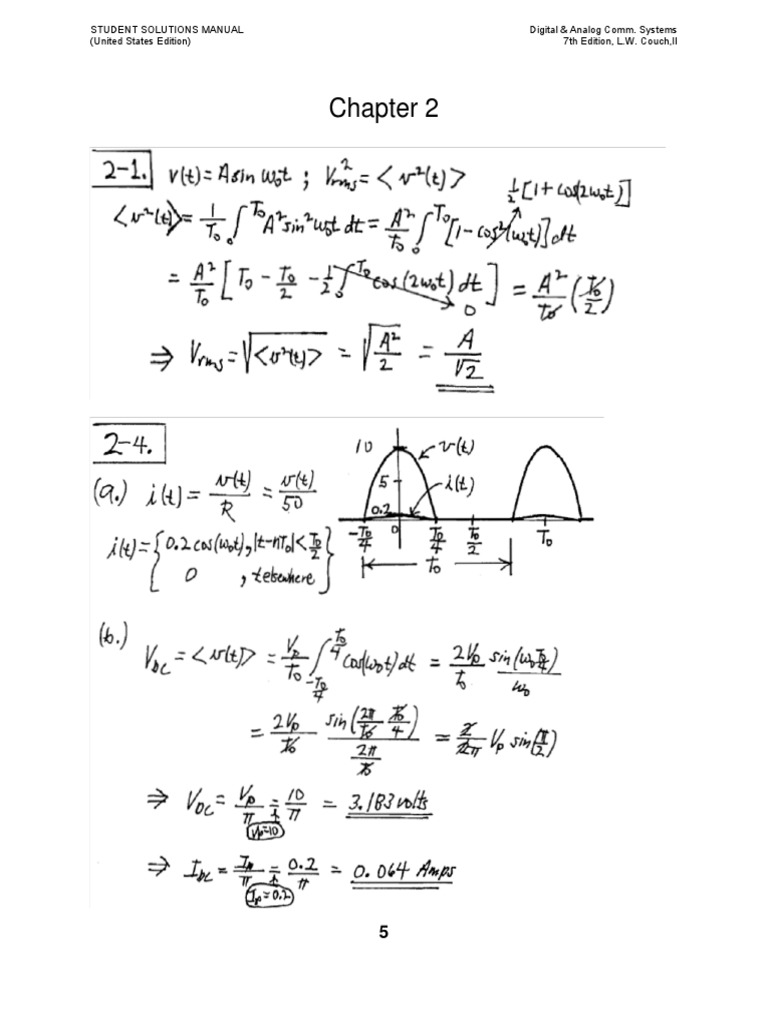 STUDENT SOLUTIONS MANUAL
(United States Edition)
Digital & Analog Comm. Systems
7th Edition, L.W. Couch,II
Chapter 2
2-1. v(t) = A sin ω₀t ; V²rms = <v²(t)>
½[1+cos(2ω₀t)]
<v²(t)> = 1/T₀ ∫₀^T₀ A² sin² ω₀t dt = A²/T₀ ∫₀^T₀ [1-cos²(ω₀t)]dt
= A²/T₀ [T₀ - T₀/2 - ½ ∫₀^T₀ cos(2ω₀t) dt] = A²/T₀ (T₀/2)
0
⇒ Vrms = √<v²(t)> = √(A²/2) = A/√2
2-4.
(a.) i(t) = v(t)/R = v(t)/50
i(t) = { 0.2 cos(ω₀t), |t-nT₀| < T₀/2
0 , t elsewhere }
10 v(t)
5 i(t)
0.2
-T₀/4 0 T₀/4 T₀/2 T₀
T₀
(b.) VDC = <v(t)> = Vp/T₀ ∫_-T₀/4^T₀/4 cos(ω₀t) dt = 2Vp/T₀ sin(ω₀T₀/4)/ω₀
= 2Vp/T₀ sin(2π/T₀ T₀/4)/(2π/T₀) = 2/2π Vp sin(π/2)
⇒ VDC = Vp/π = 10/π = 3.183 volts
Vp=10
⇒ IDC = Ip/π = 0.2/π = 0.064 Amps
Ip=0.2
5